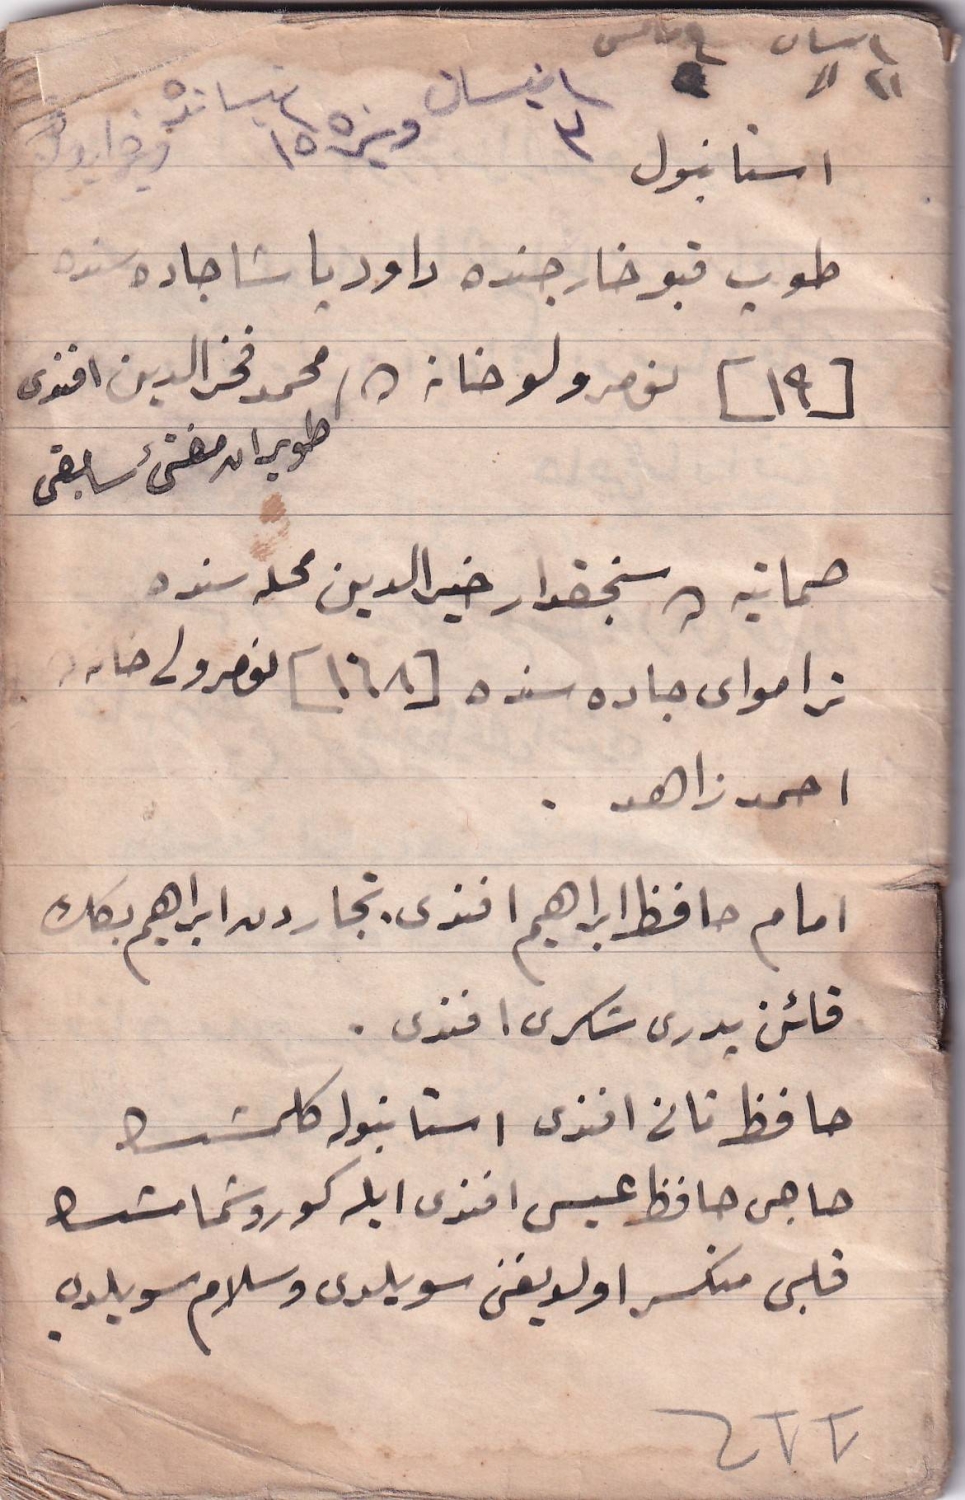 نیسان مارس
نیسان ویزه ١٥ نیسانده
استانبول
طوپ قپو خارجنده داود پاشا جاده سنده
[١٩] نومرولو خانه ده محمد فخرالدین افندی
طویران مفتئ سابقی
صماتیه ده سنجقدار خیرالدین محله سنده
تراموای جاده سنده [١٦٨] نومرولی خانه ده
احمد زاهد .
امام حافظ ابراهیم افندی . تجاردن ابراهیم بكك
قائن پدری شكری افندی .
حافظ ثانی افندی استانبوله كلمشده
حاجی حافظ عیسی افندی ایله كوروشمامشده
قلبی منكسر اولدیغنی سویلدی وسلام سویلدی .